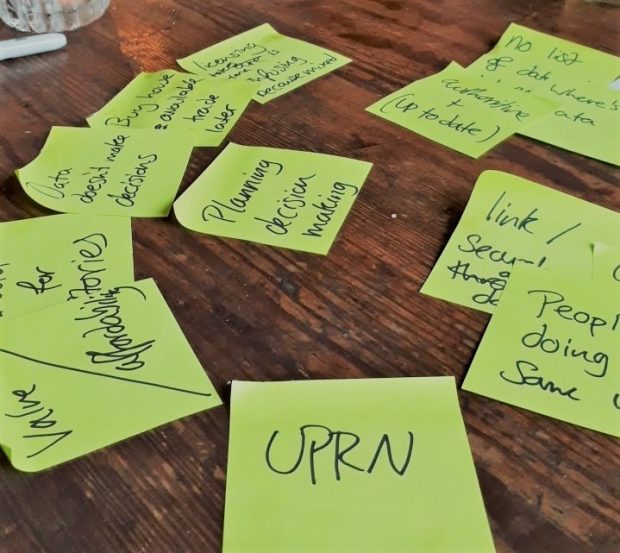 licensing
is
confusing
because mixed
Buy house
available
trade
later
Data
doesn't make
decisions
Planning
decision
making
no list
of data where's
data
authoritative
+
(up to date)
link /
People
doing
Same
for
Value / affordability
UPRN